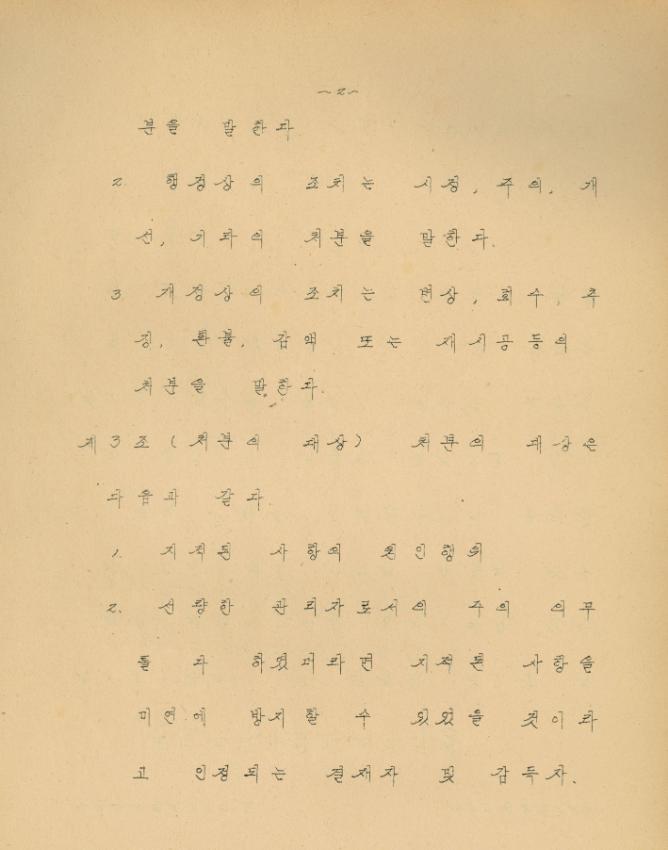 ~2~
분을 말한다
2. 행정상의 조치는 시정, 주의, 개
선, 기타의 처분을 말한다.
3. 재정상의 조치는 변상, 회수, 추
징, 환불, 감액 또는 재시공등의
처분을 말한다.
제3조(처분의 대상) 처분의 대상은
다음과 같다.
1. 지적된 사항의 원인행위
2. 선량한 관리자로서의 주의 의무
를 다 하였더라면 지적된 사항을
미연에 방지할 수 있었을 것이라
고 인정되는 결재자 및 감독자.